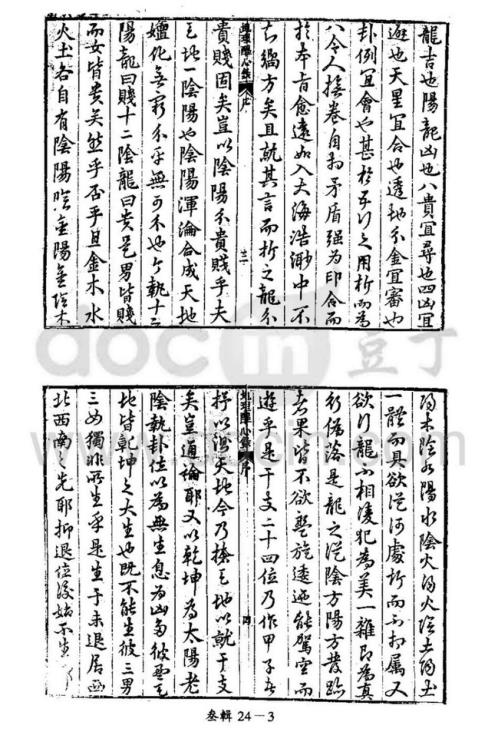 龍吉也陽龍凶也八貴宜尋也四凶宜
避也天星宜合也透地分金宜審也
卦例宜會也甚於五行之用析而為
八令人掩卷自相矛盾強為印合而
於本旨愈遠如入大海浩渺中不
知端方矣且就其言而析之龍分
貴賤固矣豈以陰陽分貴賤乎夫
天地一陰陽也陰陽渾淪合成天地
嬗化無窮分乎無可不也今執十二
陽龍曰賤十二陰龍曰貴是男皆賤
而女皆貴矣然乎否乎且金木水
火土各自有陰陽陰金陽金陰木
地理辟心集 序
三
陽木陰水陽水陰火陽火陰土陽土
一體而具欲從何處析而分相屬又
欲行龍不相凌犯為美一雜即為真
行偽落是龍之從陰方陽方發跡
者果皆不欲盤旋逶迤能駕空而
遊乎是干支二十四位乃作甲子者
抒以混天地今乃揍天地以就干支
矣豈通論耶又以乾坤為太陽老
陰執卦位以為無生息為凶為彼
地皆乾坤之大生也既不能生彼三男
三女獨非所生乎是生于未退居西
北西南之先耶抑退位後始不生
序
四
doc in 豆丁
www.docin.com
叁輯 24-3